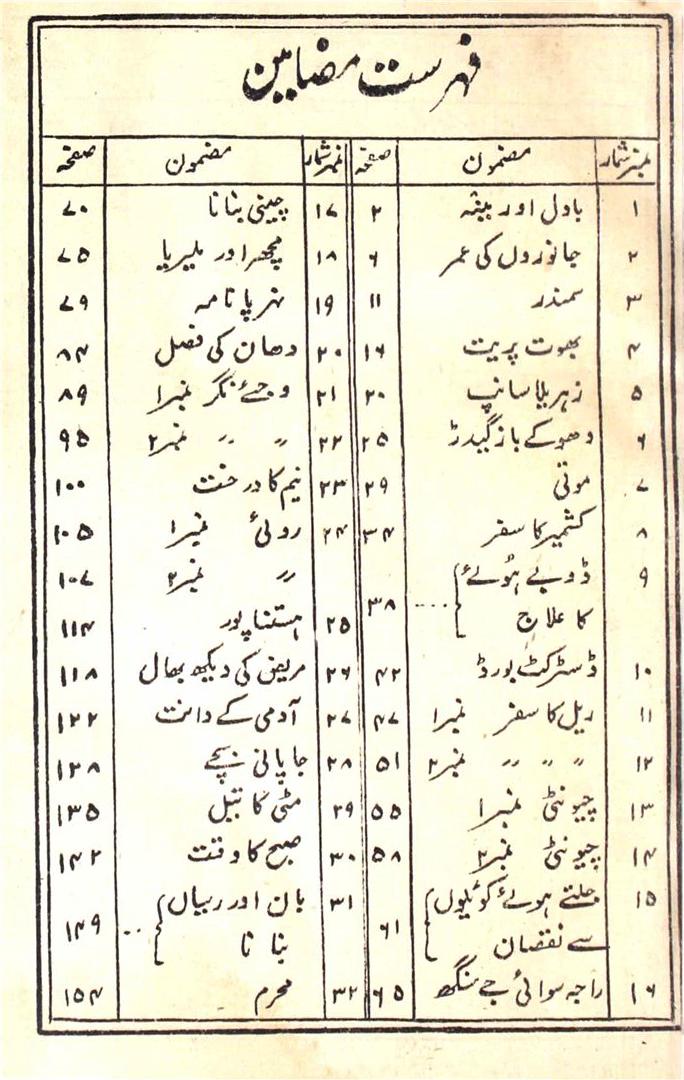 فہرست مضامین
نمبر شمار مضمون صفحہ
۱ بادل اور مینہ ۲
۲ جانوروں کی عمر ۶
۳ سمندر ۱۱
۴ بھوت پریت ۱۶
۵ زہریلا سانپ ۲۰
۶ دھوکے باز گیدڑ ۲۵
۷ موتی ۲۹
۸ کشمیر کا سفر ۳۴
۹ ڈوبے ہوئے
کا علاج .... ۳۸
۱۰ ڈسٹرکٹ بورڈ ۴۲
۱۱ ریل کا سفر نمبر۱ ۴۷
۱۲ 〃 〃 〃 نمبر۲ ۵۱
۱۳ چیونٹی نمبر۱ ۵۵
۱۴ چیونٹی نمبر۲ ۵۸
۱۵ جلتے ہوئے کوئیلوں
سے نقصان ۶۱
۱۶ راجہ سوائی جے سنگھ ۶۵
نمبر شمار مضمون صفحہ
۱۷ چینی بنانا ۷۰
۱۸ مچھر اور ملیریا ۷۵
۱۹ نہر پانامہ ۷۹
۲۰ دھان کی فصل ۸۴
۲۱ وجے نگر نمبر۱ ۸۹
۲۲ 〃 〃 نمبر۲ ۹۵
۲۳ نیم کا درخت ۱۰۰
۲۴ روئی نمبر۱ ۱۰۵
〃 نمبر۲ ۱۰۷
۲۵ ہستناپور ۱۱۴
۲۶ مریض کی دیکھ بھال ۱۱۸
۲۷ آدمی کے دانت ۱۲۲
۲۸ جاپانی بچے ۱۲۸
۲۹ مٹی کا تیل ۱۳۵
۳۰ صبح کا وقت ۱۴۲
۳۱ بان اور رسیاں
بنانا .. ۱۴۹
۳۲ محرم ۱۵۴